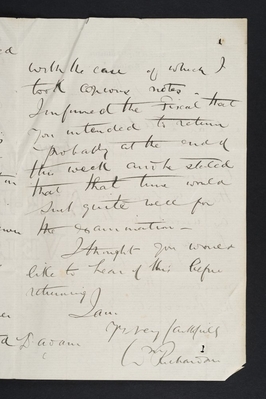 with the case of which I
took copious notes -
I informed the Fiscal that
you intended to return
- probably at the end of
this week and he stated
that that time would
suit quite well for
the examination -
I thought you would
like to hear of this before
returning
I am
Yrs very faithfully
Richardson